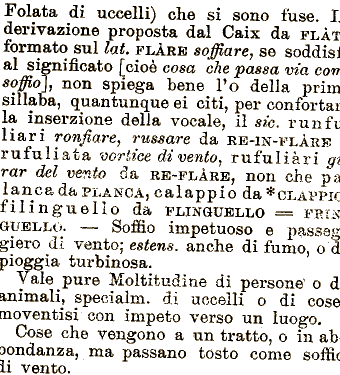 Folata di uccelli) che si sono fuse. I
derivazione proposta dal Caix da FLĀT
formato sul lat. FLĀRE soffiare, se soddisf
al significato [cioè cosa che passa via com
soffio], non spiega bene l'o della prim
sillaba, quantunque ei citi, per confortar
la inserzione della vocale, il sic. runfu
liari ronfiare, russare da RE-IN-FLĀRE
rufuliata vortice di vento, rufuliàri gi
rar del vento da RE-FLĀRE, non che pa
lanca da PLANCA, calappio da *CLAPPIO
filinguello da FLINGUELLO = FRIN
GUELLO. — Soffio impetuoso e passeg
giero di vento; estens. anche di fumo, o d
pioggia turbinosa.
Vale pure Moltitudine di persone o d
animali, specialm. di uccelli o di cose
moventisi con impeto verso un luogo.
Cose che vengono a un tratto, o in ab
bondanza, ma passano tosto come soffio
di vento.